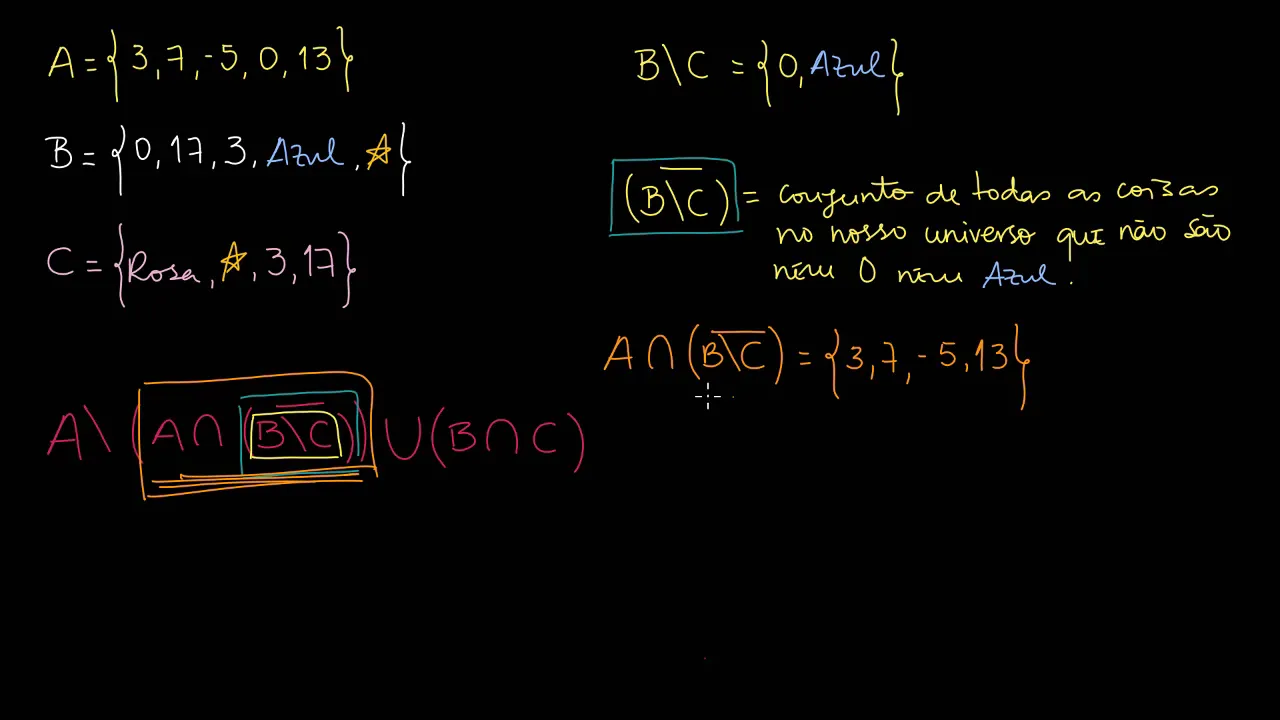 A = {3, 7, -5, 0, 13}
B = {0, 17, 3, Azul, ☆}
C = {Rosa, ☆, 3, 17}
A\(A∩(\overline{B\C}))∪(B∩C)
B\C = {0, Azul}
(\overline{B\C}) = conjunto de todas as coisas
no nosso universo que não são
nem 0 nem Azul.
A∩(\overline{B\C}) = {3, 7, -5, 13}